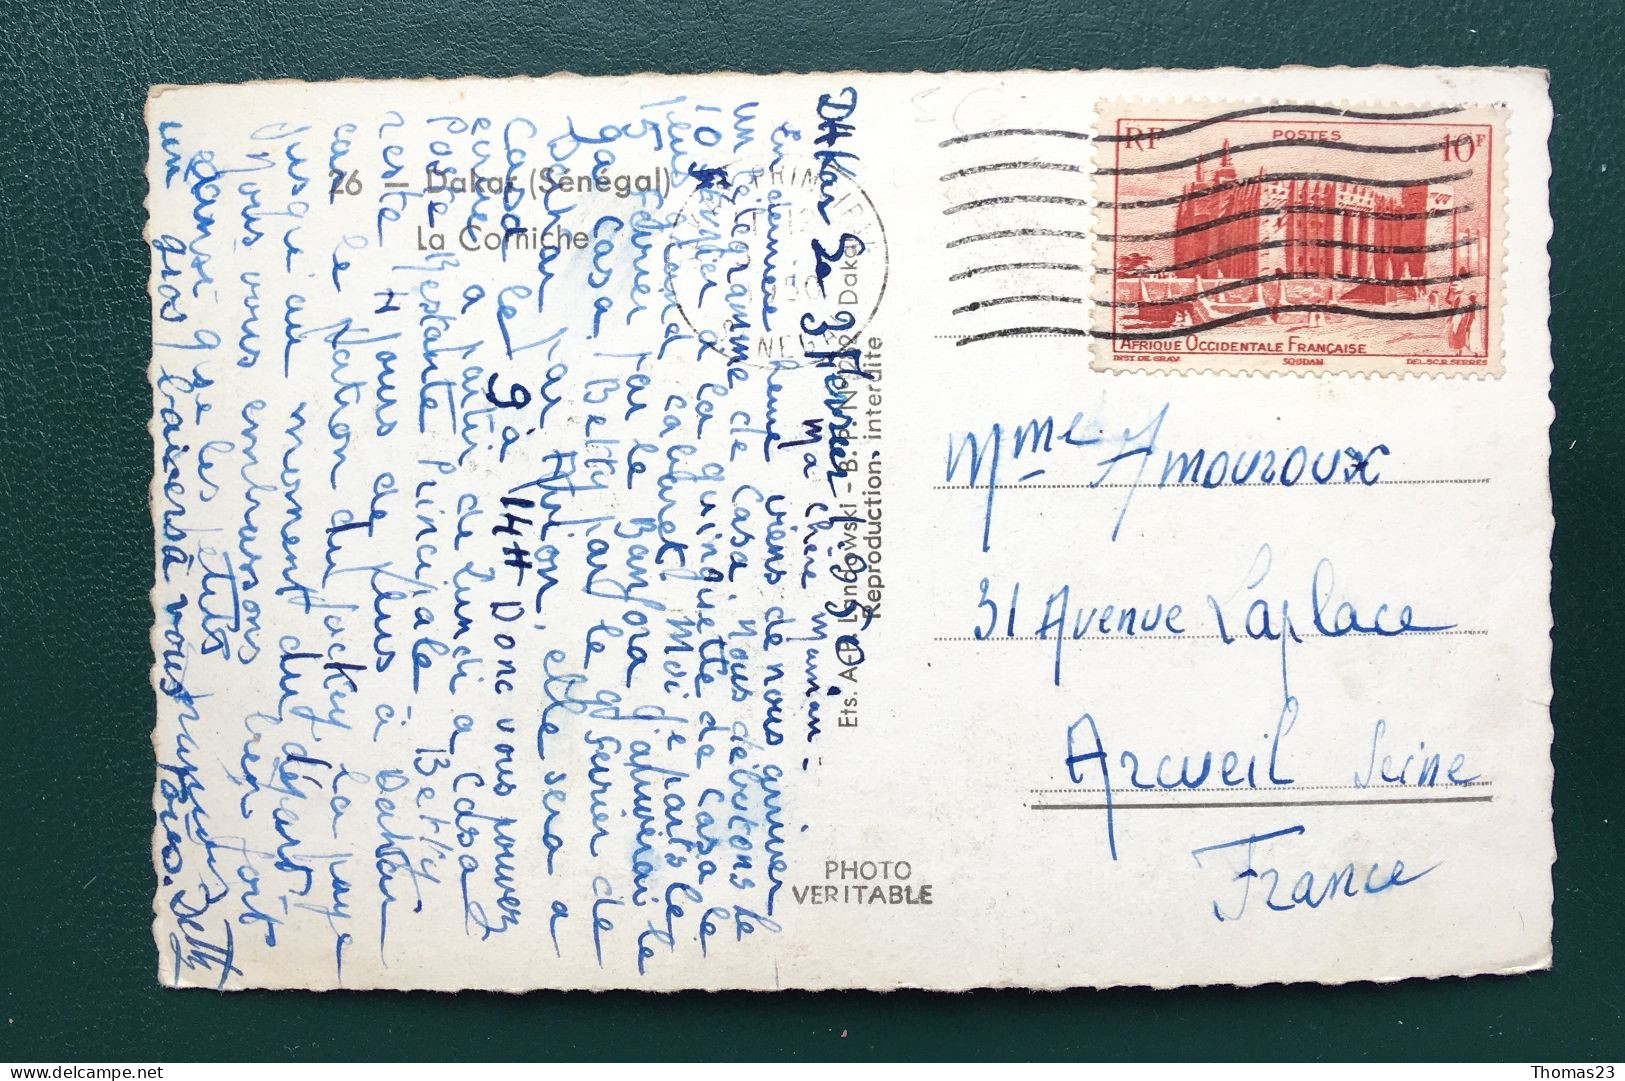 DAkar Le 3 Février 1950.
Ma chère maman.
En dernière heure viens de nous arriver
un télégramme de Casa. Nous débutons le
10 février à la guinguette de Casa le
plus grand cabaret. Moi je parts le
15 Février par le Banfora j'arriverai le
à Casa. Betty par le 9 Février de
Dakar par Avion, elle sera a
Casa le 9 à 14H Donc vous pouvez
ecrire a partir de Lundi a Casa
Poste Restante Principale. Betty
reste 4 jours de plus à Dakar
car le Patron du Jockey la paye
jusqu'au moment du départ.
Nous vous embrassons bien fort
ainsi que les petits
un gros baiser à vous Betty
26 — Dakar (Sénégal)
La Corniche
Ets. A. Landowski - B. P. N° 1282 Dakar
Reproduction interdite
PHOTO
VERITABLE
RF
POSTES
10F
AFRIQUE OCCIDENTALE FRANÇAISE
INST. DE GRAV.
SOUDAN
DEL. SC. R. SERRES
Mme Amouroux
31 Avenue Laplace
Arcueil Seine
France
Thomas23